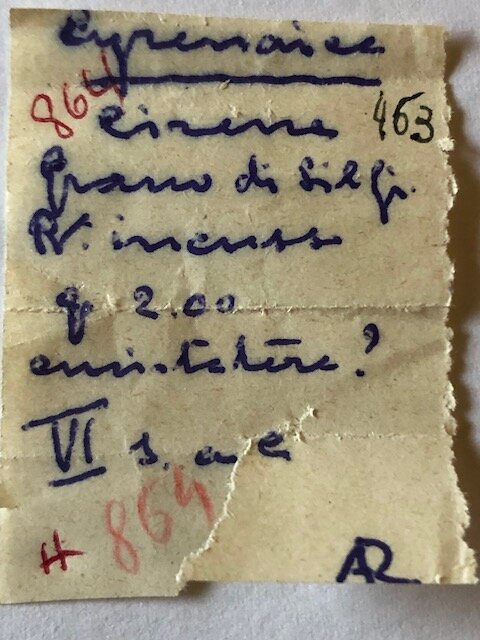 Cyrenaica
864 Cirene 463
Grano di Silfi.
R. incuso
g 2.00
emistatere?
VI s. a C
H 864
AR